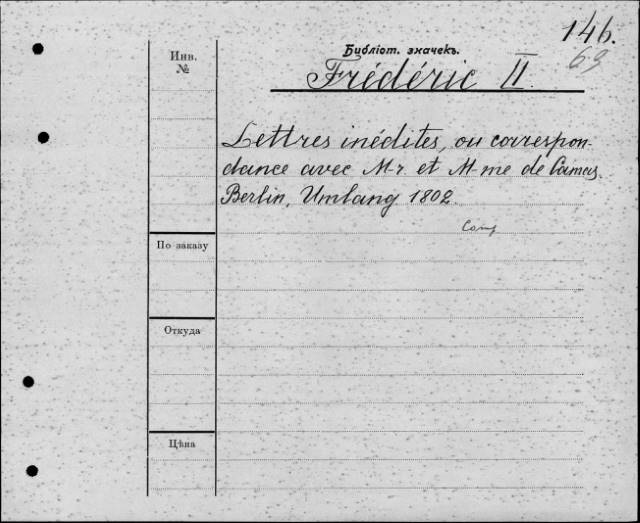 146.
69
Инв.
№
Библіот. значекъ.
Frédéric II.
Lettres inédites, ou correspon-
dance avec M-r. et M-me de Camas.
Berlin, Umlang 1802
По заказу
Откуда
Цѣна